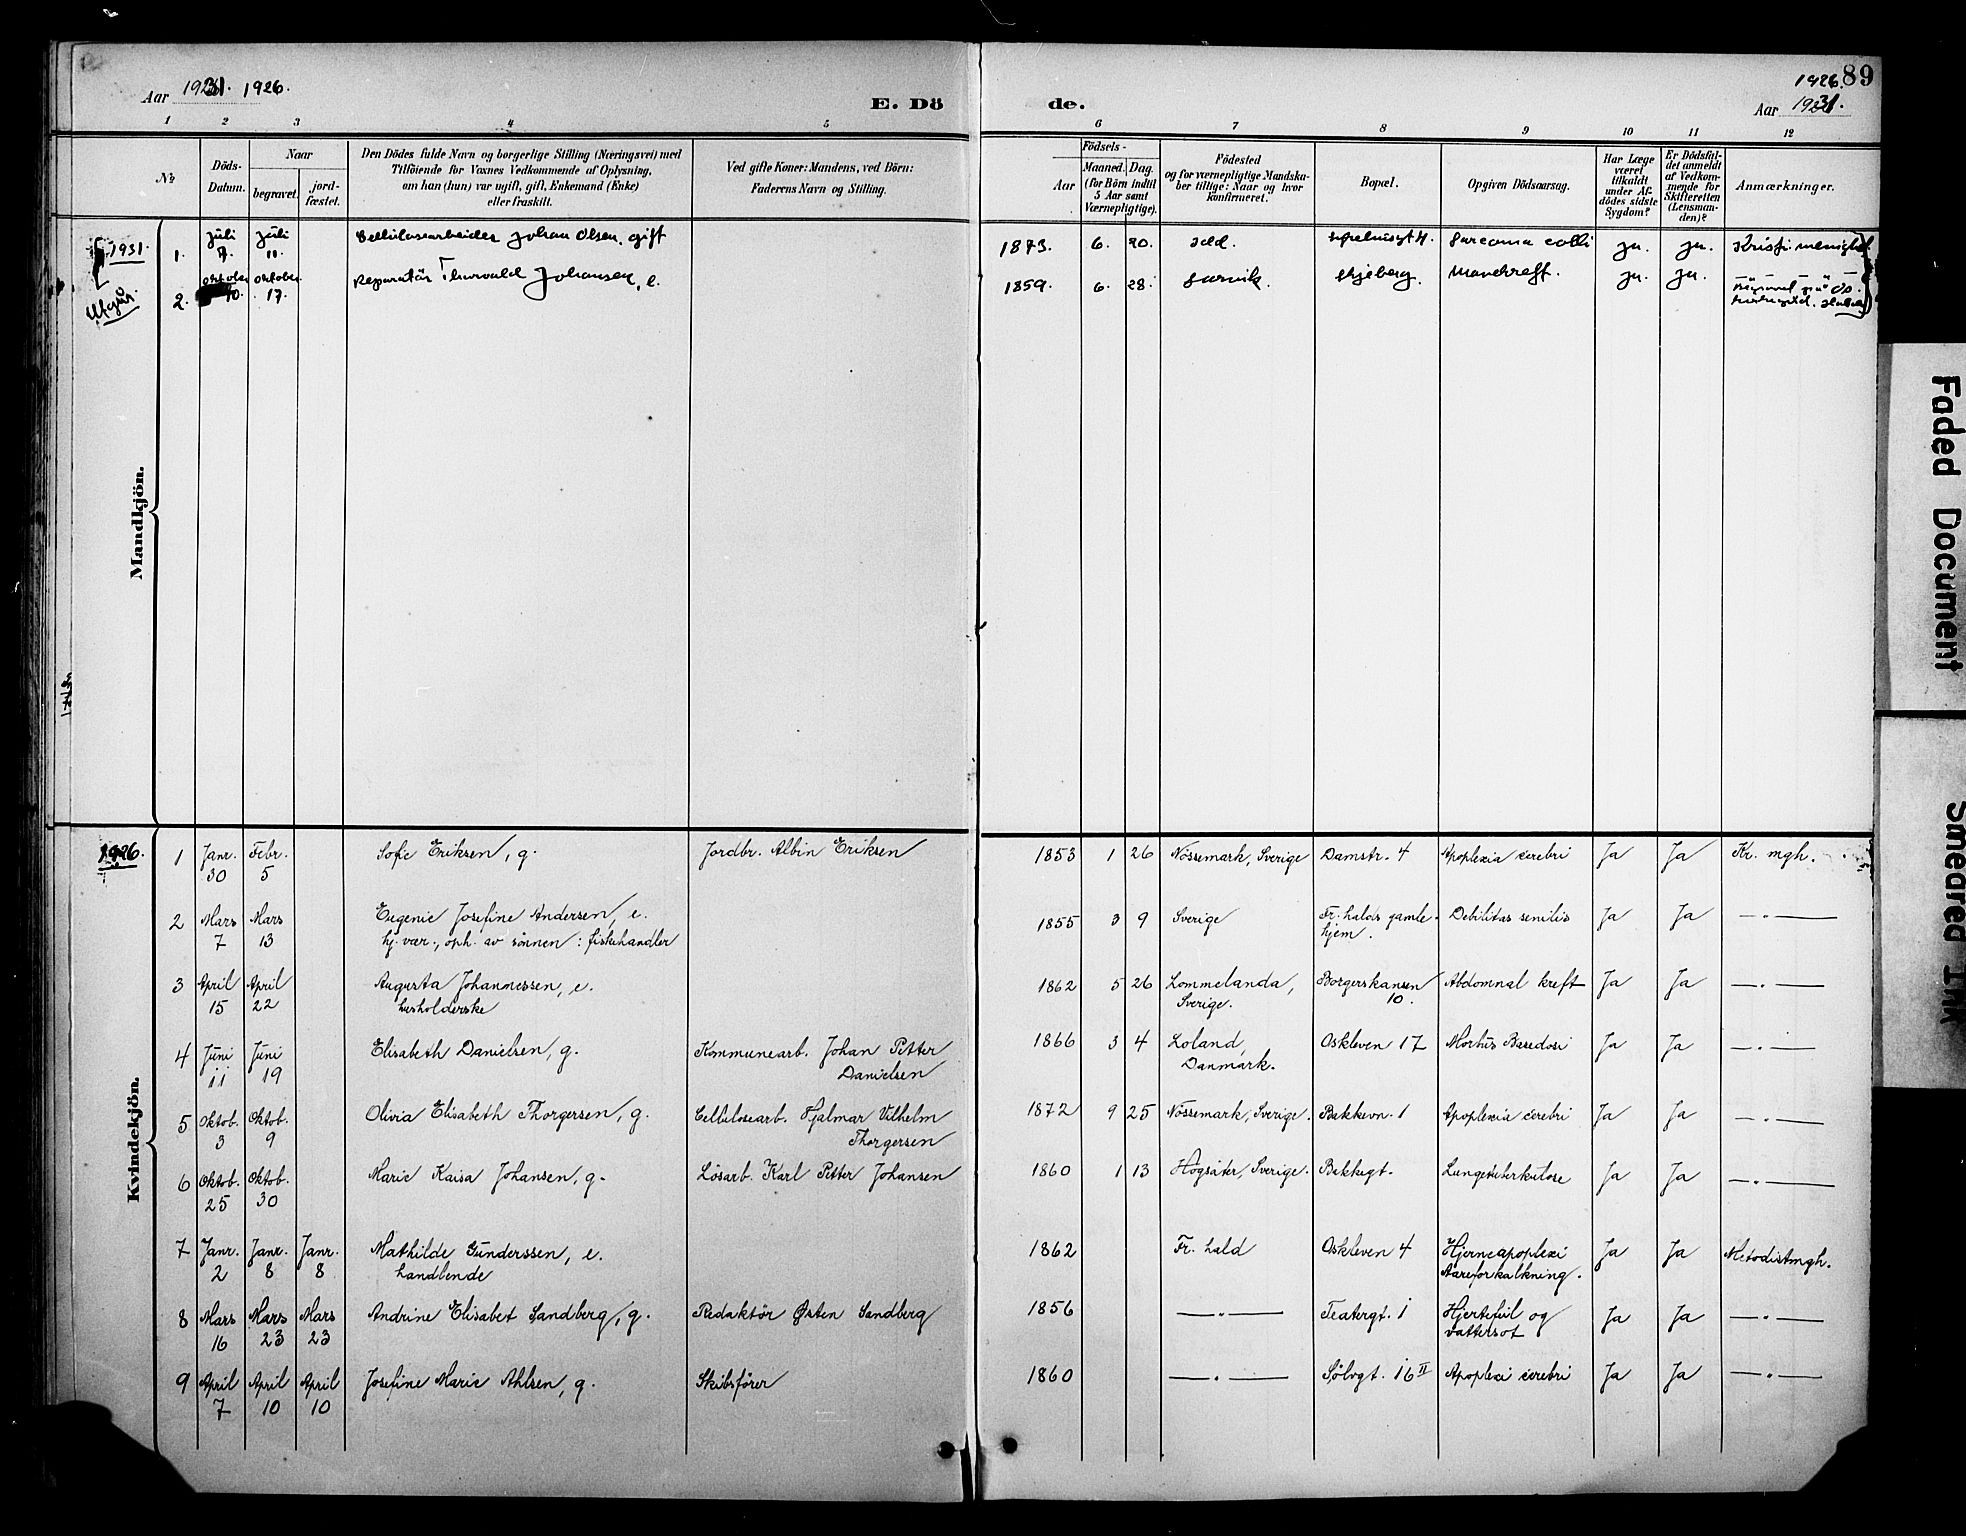 Aar 1931. 1926.
E. Dö
1 2 3 4 5
№
Döds-
Datum.
Naar
begravet.
jord-
fæstet.
Den Dödes fulde Navn og borgerlige Stilling (Næringsvei) med
Tilföiende for Voxnes Vedkommende af Oplysning,
om han (hun) var ugift, gift, Enkemand (Enke)
eller fraskilt.
Ved gifte Koner: Mandens, ved Börn:
Faderens Navn og Stilling.
de.
1926. 89
Aar 1931.
6 7 8 9 10 11 12
Födsels-
Aar
Maaned. Dag.
(for Börn indtil
5 Aar samt
Værnepligtige).
Födested
og for værnepligtige Mandska-
ber tillige: Naar og hvor
konfirmeret.
Bopæl.
Opgiven Dödsaarsag.
Har Læge
været
tilkaldt
under Af-
dödes sidste
Sygdom?
Er Dödsfal-
det anmeldt
af Vedkom-
mende for
Skifteretten
(Lensman-
den)?
Anmærkninger.
1931.
Utgår.
Mandkjön.
1. Juli 7. Juli 11. Cellulosearbeider Johan Olsen, gift 1873. 6. 20. Idd. Sarcoma colli ja. ja. Kristi menighet
2. Oktober 10. Oktober 17. Reparatör Thorvald Johansen, e. 1859. 6. 28. Larvik. Skjeberg. Mavekreft. ja. ja.
1926.
Kvindekjön.
1 Janr. 30 Febr. 5 Sofie Eriksen, g. Jordbr. Albin Eriksen 1853 1 26 Nössemark, Sverige Damstr. 4 Apoplexia cerebri Ja Ja Kr. mgh.
2 Mars 7 Mars 13 Eugenie Josefine Andersen, e. 1855 3 9 Sverige Fr.halds gamle- Debilitas senilis Ja Ja —"—
hj. vær., oph. av sönnen: fiskehandler hjem.
3 April 15 April 22 Augusta Johannessen, e. 1862 5 26 Lommelanda, Borgerskansen Abdomnal kreft Ja Ja —"—
husholderske Sverige. 10.
4 Juni 11 Juni 19 Elisabeth Danielsen, g. Kommunearb. Johan Petter 1866 3 4 Loland, Oskleven 17 Morbus Basedovi Ja Ja —"—
Danielsen Danmark.
5 Oktob. 3 Oktob. 9 Olivia Elisabeth Thorgersen, g. Cellulosearb. Hjalmar Vilhelm 1872 9 25 Nössemark, Sverige. Bakkevn. 1 Apoplexia cerebri Ja Ja —"—
Thorgersen
6 Oktob. 25 Oktob. 30 Marie Kaisa Johansen, g. Lösarb. Karl Petter Johansen 1860 1 13 Högsäter, Sverige. Bakkegt. Lungetuberkulose Ja Ja —"—
7 Janr. 2 Janr. 8 Janr. 8 Mathilde Gunderssen, e. 1862 Fr.hald Oskleven 4 Hjerneapoplexi Ja Ja Metodistmgh.
handlende Aareforkalkning.
8 Mars 16 Mars 23 Mars 23 Andrine Elisabet Sandberg, g. Redaktør Østen Sandberg 1856 —"— Teatergt. 1 Hjertefeil og Ja Ja —"—
vattersot
9 April 7 April 10 April 10 Josefine Marie Ahlsen, g. Skibsfører 1860 —"— Sølvgt. 16 II Apoplexi cerebri Ja Ja —"—
Faded Document
Smeared Ink